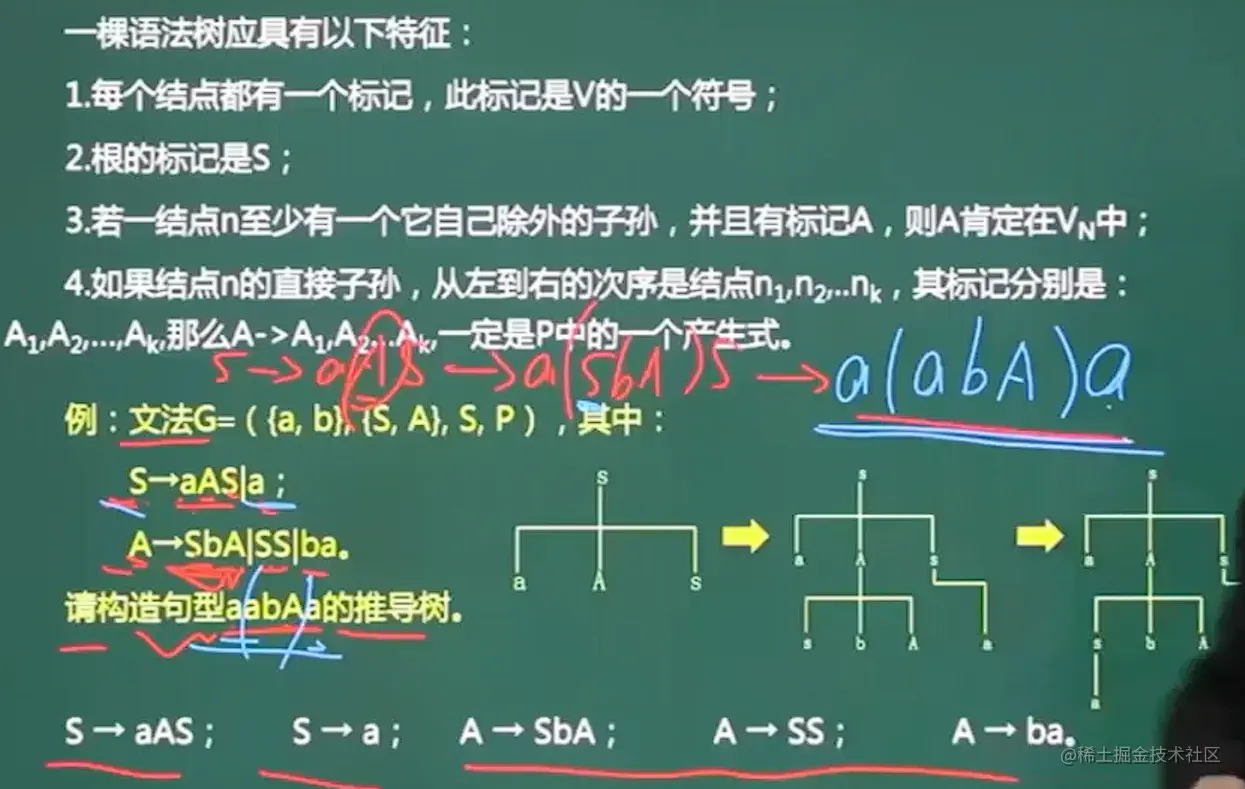 一棵语法树应具有以下特征：
1.每个结点都有一个标记，此标记是V的一个符号；
2.根的标记是S；
3.若一结点n至少有一个它自己除外的子孙，并且有标记A，则A肯定在VN中；
4.如果结点n的直接子孙，从左到右的次序是结点n1,n2,..nk，其标记分别是：
A1,A2,...,Ak,那么A->A1,A2...Ak,一定是P中的一个产生式。
S→aAS→a(SbA)S→a(abA)a
例：文法G=（{a, b}, {S, A}, S, P），其中：
S→aAS|a；
A→SbA|SS|ba。
请构造句型aabAa的推导树。
S
a A S
S
a A S
S b A a
S
a A S
S b A
a
S → aAS； S → a； A → SbA； A → SS； A → ba。
@稀土掘金技术社区